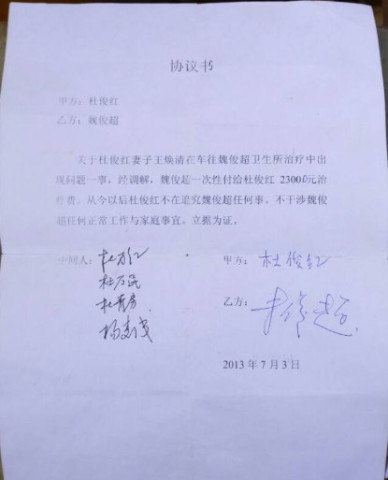 协议书
甲方：杜俊红
乙方：魏俊超
关于杜俊红妻子王焕清在车往魏俊超卫生所治疗中出
现问题一事，经调解，魏俊超一次性付给杜俊红 23000元治
疗费。从今以后杜俊红不在追究魏俊超任何事、不干涉魏俊
超任何正常工作与家庭事宜。立据为证。
中间人：杜万红
杜万民
甲方：杜俊红
乙方：
2013 年 7 月 3 日